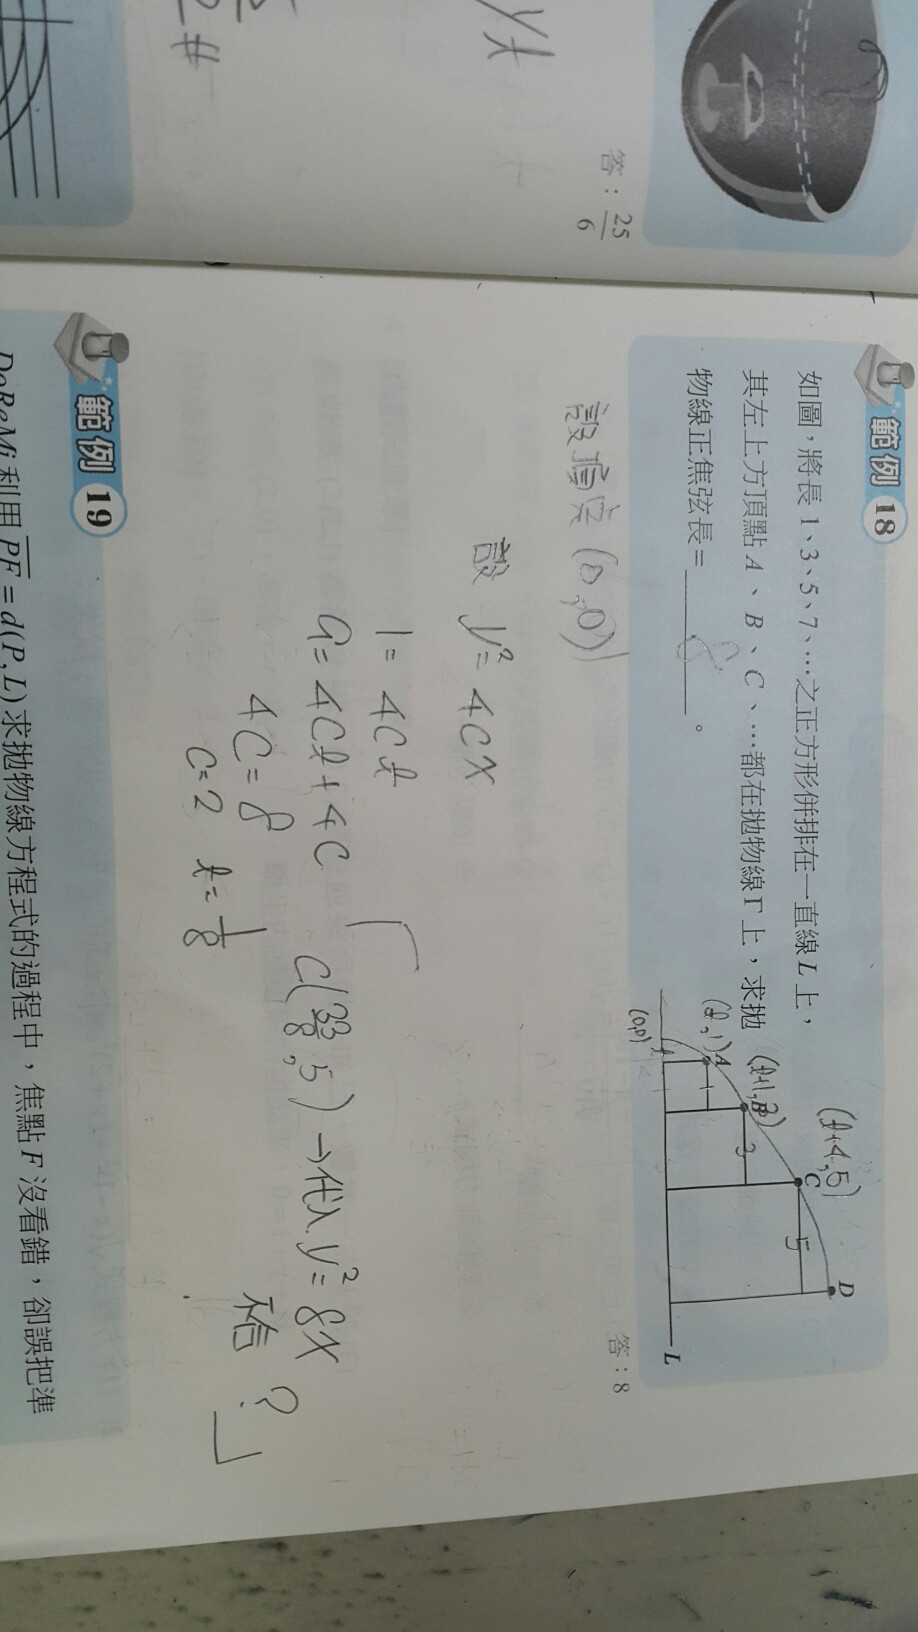 答：25/6
範例 18
如圖，將長 1、3、5、7、…之正方形併排在一直線 L 上，
其左上方頂點 A、B、C、…都在拋物線 Γ 上，求拋
物線正焦弦長＝ 8 。
(t+4,5)
(t+1,3)
(t,1)
(0,0)
t
A
B
C
D
1
3
5
L
答：8
設頂點 (0,0)
設 y² = 4cx
1 = 4ct
9 = 4ct + 4c
4c = 8
c = 2 t = 1/8
C(33/8, 5) → 代入 y² = 8x
?
範例 19
DoReMi 利用 PF = d(P, L) 求拋物線方程式的過程中，焦點 F 沒看錯，卻誤把準